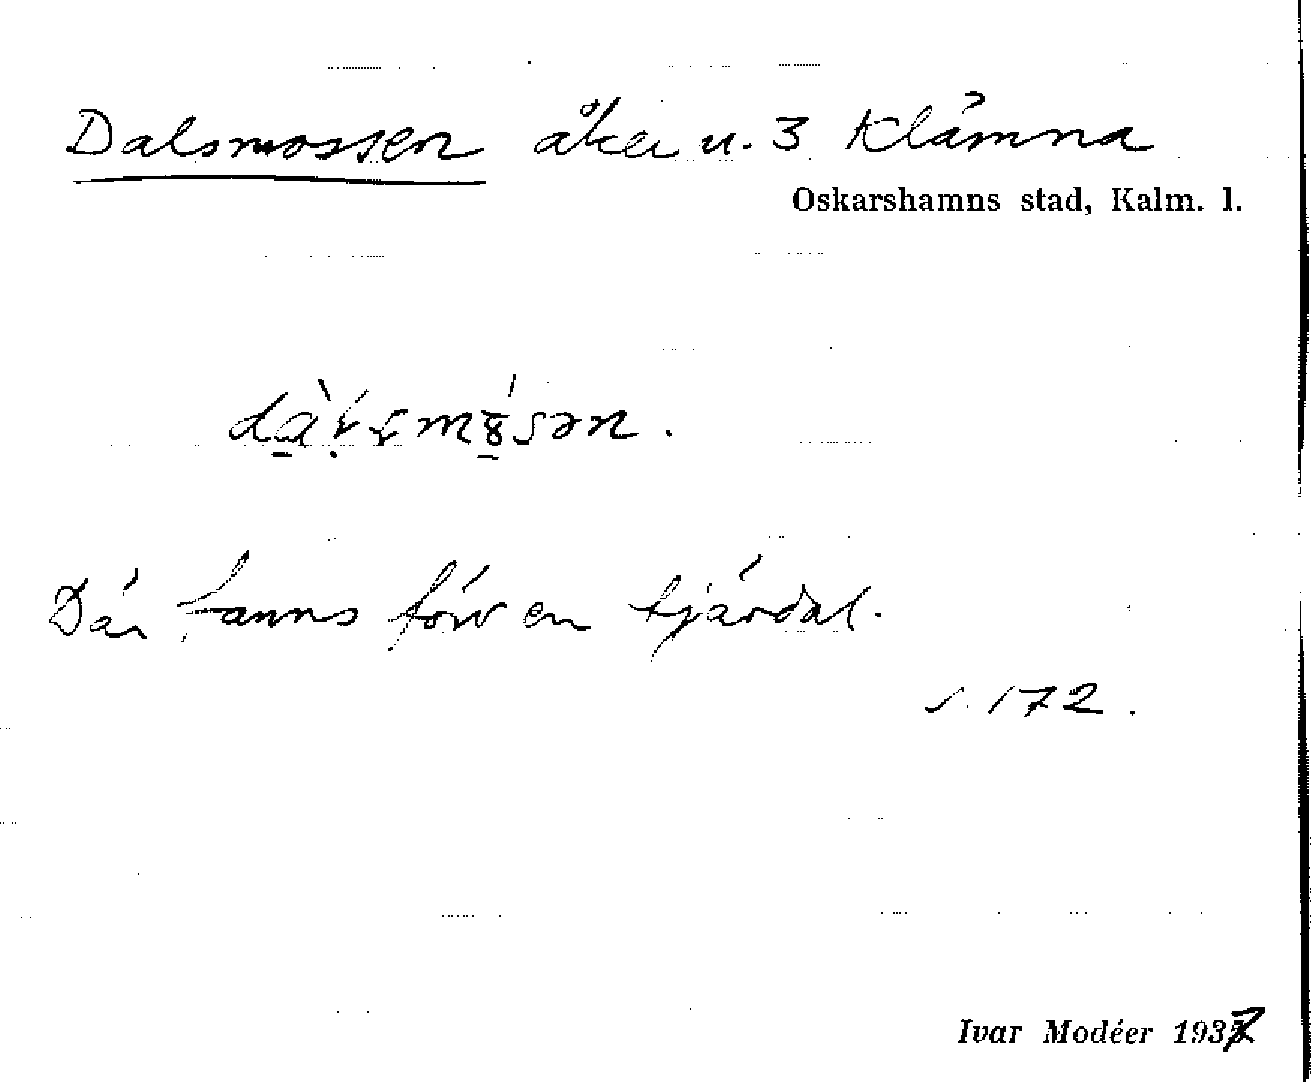 Dalsmossen åker u. 3 Klämna
Oskarshamns stad, Kalm. l.
Där fanns förr en tjärdal.
s. 172.
Ivar Modéer 1937